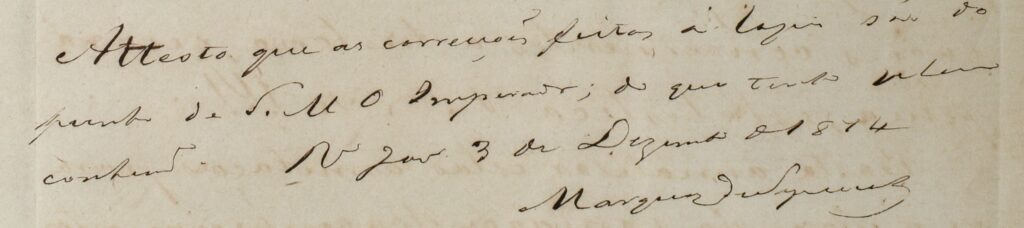 Attesto que as correcções feitas á lapis são do
punho de S. M. O Imperador; do que tenho pleno
conhecim.
Rº Janº 3 de Dezembro de 1874
Marquez de Sapucahy